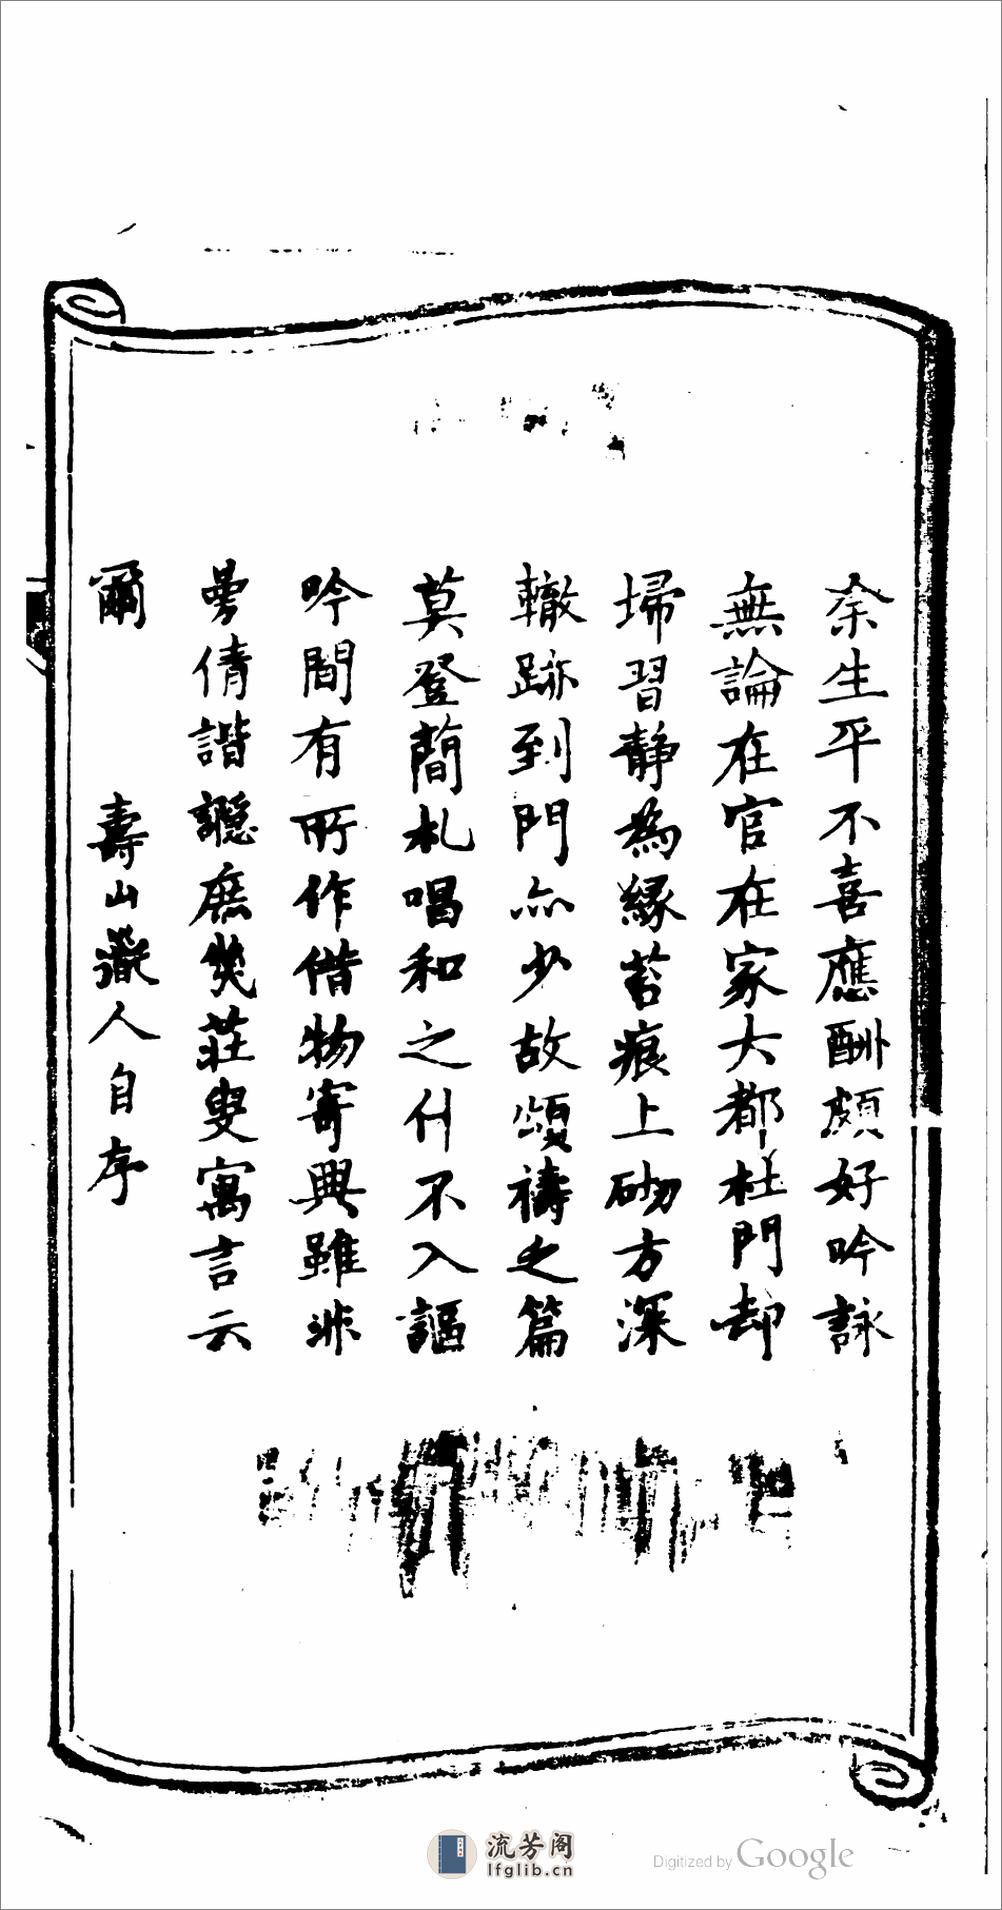 余生平不喜應酬頗好吟詠
無論在官在家大都杜門却
埽習靜為緣苔痕上砌方深
轍跡到門亦少故頌禱之篇
莫登蕳札唱和之什不入謳
吟間有所作借物寄興雖非
曼倩諧讔庶幾莊叟寓言云
爾 壽山癡人自序
流芳阁
lfglib.cn
Digitized by Google